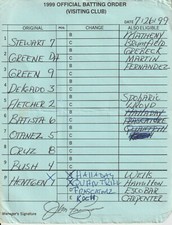 1999 OFFICIAL BATTING ORDER
(VISITING CLUB)
DATE 7-26-99
ORIGINAL POS. CHANGE ALSO ELIGIBLE
1 STEWART 7 B MATHENY
C BRUMFIELD
2 GREENE DH B GREBECK
C MARTIN
3 GREEN 9 B FERNANDEZ
C
4 DELGADO 3 B
C
5 FLETCHER 2 B
C
6 BATISTA 6 B
C
7 OTANEZ 5 B
C
8 CRUZ 8 B
C
9 BUSH 4 B
C
P HENTGEN HALLADAY WELLS
QUANTRILL HAMILTON
ESCOBAR
KOCH CARPENTER
Manager's Signature